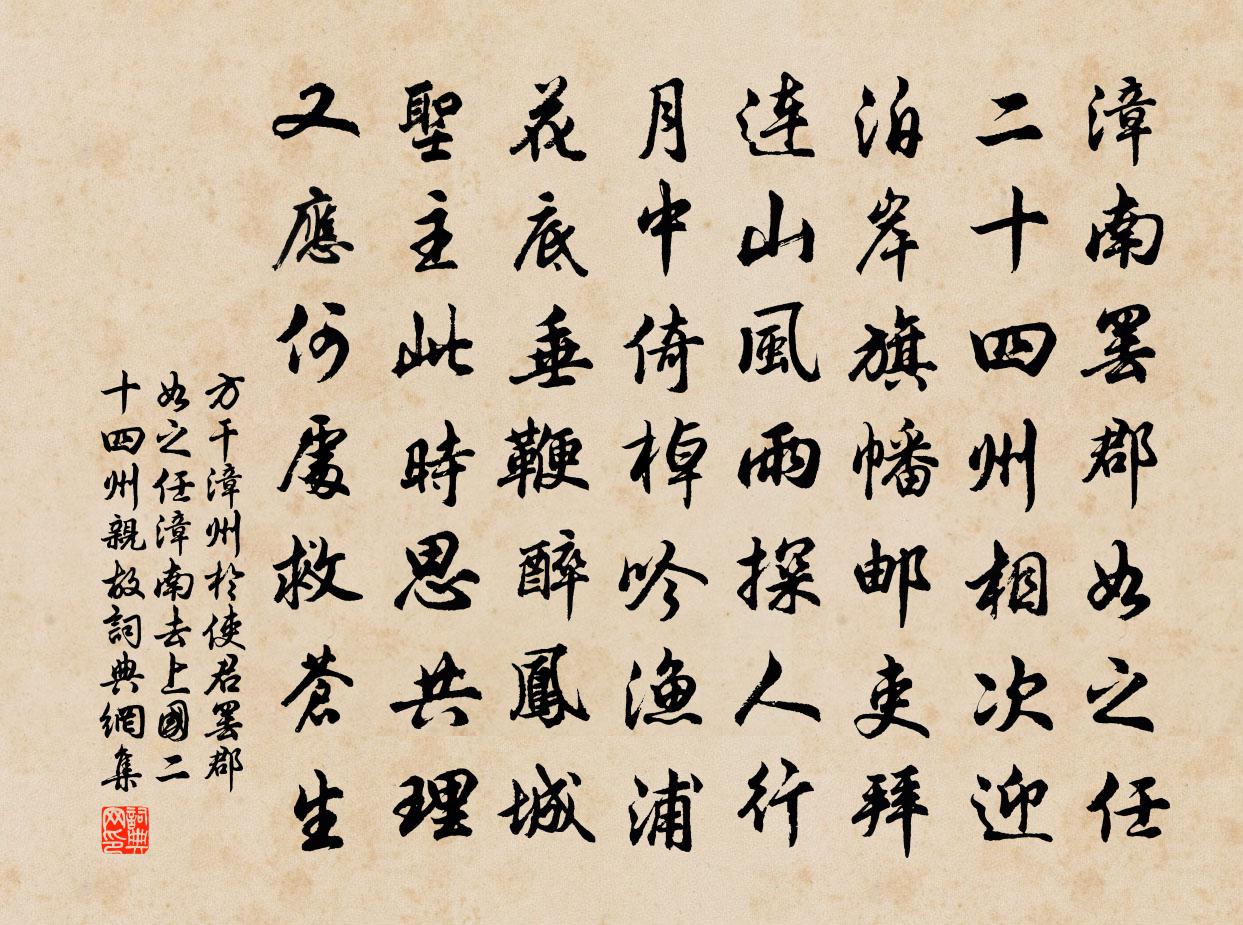 漳南罢郡如之任
二十四州相次迎
泊岸旗幡邮吏拜
连山風雨探人行
月中倚棹吟渔浦
花底垂鞭醉鳳城
聖主此時思共理
又應何處救蒼生
方干漳州於使君罢郡
如之任漳南去上國二
十四州親故詞典網集
詞典网印